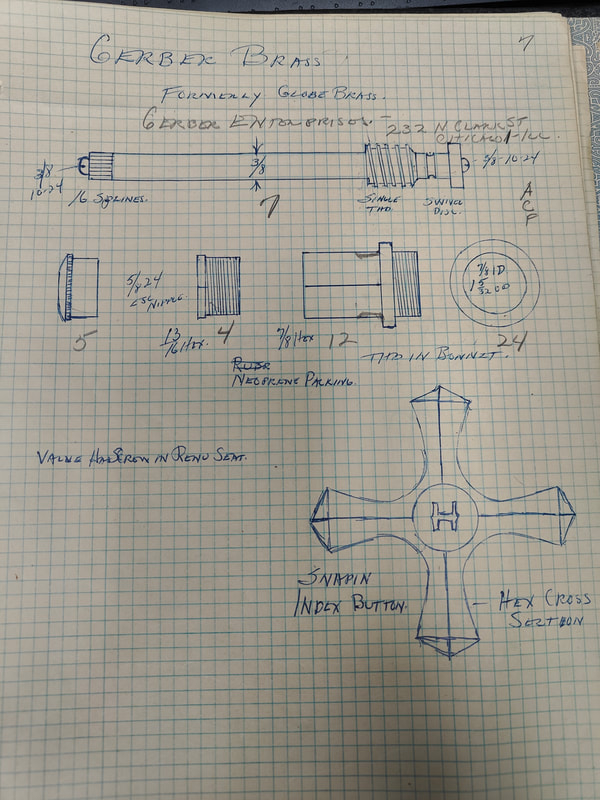 7
GERBER BRASS
FORMERLY GLOBE BRASS.
GERBER ENTERPRISES. -
232 N CLARK ST
CHICAGO 1 - ILL.
3/8
10-24
3/8
3/8-10-24
16 SPLINES.
7
SINGLE
THD.
SWIVEL
DISC.
A
C
P
5/8 24
ESC NIPPLE.
7/8 ID
1 5/32 OD
5
13/16 HEX.
4
7/8 HEX
12
24
THD IN BONNET.
NEOPRENE PACKING.
VALVE HAS SCREW IN RENU SEAT.
H
SNAPIN
INDEX BUTTON.
HEX CROSS
SECTION